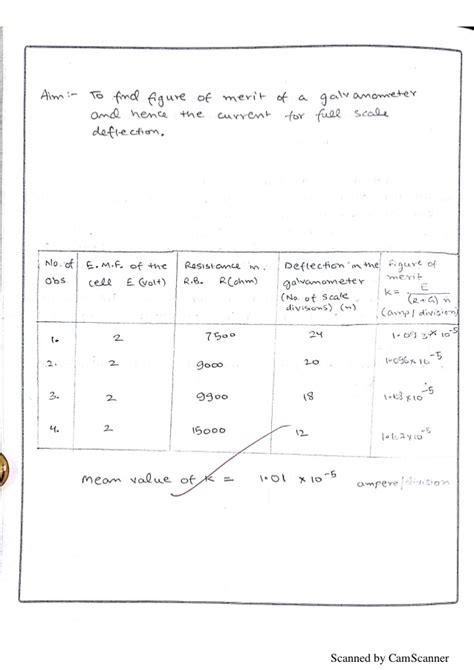 Aim:- To find figure of merit of a galvanometer
and hence the current for full scale
deflection.
No. of obs | E.M.F. of the cell E (volt) | Resistance in R.B. R(ohm) | Deflection in the galvanometer (No. of scale divisions) (n) | Figure of merit k = E / (R+G) n (amp/division)
1. 2 7500 24 × 10-5
2. 2 9000 20 × 10-5
3. 2 9900 18 ×10-5
4. 2 15000 12 ×10-5
Mean value of k = 1.01 × 10-5 ampere/division
Scanned by CamScanner